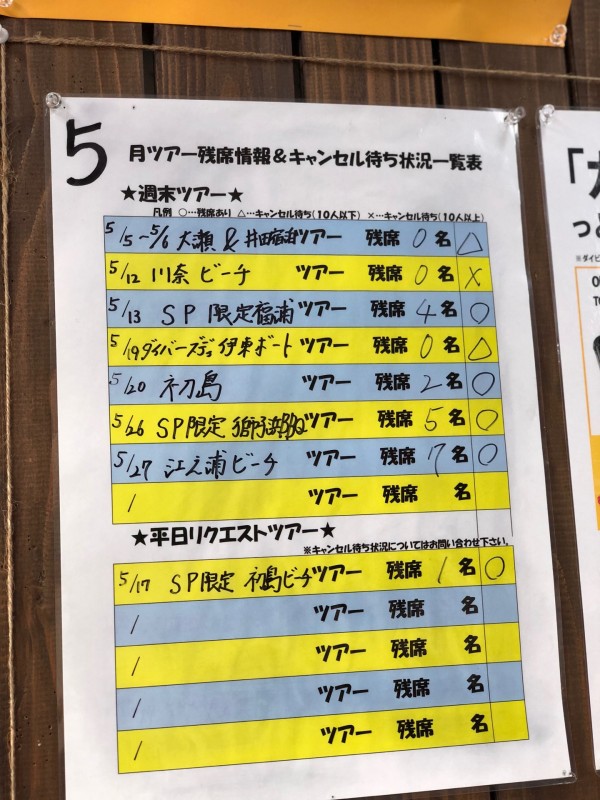 5 月ツアー残席情報&キャンセル待ち状況一覧表
★週末ツアー★
凡例 ○…残席あり △…キャンセル待ち(10人以下) ×…キャンセル待ち(10人以上)
5/5～5/6 大瀬 & 井田宿泊ツアー 残席 0 名 △
5/12 川奈 ビーチ ツアー 残席 0 名 ×
5/13 SP 限定福浦ツアー 残席 4 名 ○
5/19 ダイバーズデー 伊東ボート ツアー 残席 0 名 △
5/20 初島 ツアー 残席 2 名 ○
5/26 SP限定 獅子浜BBQツアー 残席 5 名 ○
5/27 江之浦ビーチ ツアー 残席 7 名 ○
/ ツアー 残席 名
★平日リクエストツアー★
※キャンセル待ち状況についてはお問い合わせ下さい。
5/17 SP限定 初島ビーチツアー 残席 1 名 ○
/ ツアー 残席 名
/ ツアー 残席 名
/ ツアー 残席 名
/ ツアー 残席 名